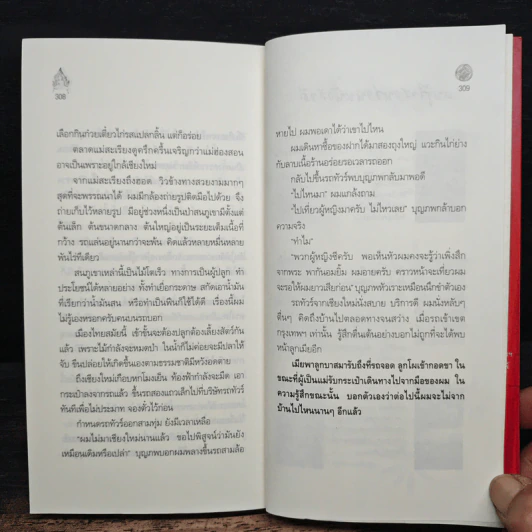 308
เลือกกินก๋วยเตี๋ยวไก่รสแปลกลิ้น แต่ก็อร่อย
ตลาดแม่สะเรียงดูครึกครื้นเจริญกว่าแม่ฮ่องสอน
อาจเป็นเพราะอยู่ใกล้เชียงใหม่
จากแม่สะเรียงถึงฮอด วิวข้างทางสวยงามมากๆ
สุดที่จะพรรณนาได้ ผมมีกล้องถ่ายรูปติดมือไปด้วย จึง
ถ่ายเก็บไว้หลายรูป มีอยู่ช่วงหนึ่งเป็นป่าสนภูเขามีตั้งแต่
ต้นเล็ก ต้นขนาดกลาง ต้นใหญ่อยู่เป็นระยะเต็มเนื้อที่
กว้าง รถแล่นอยู่นานกว่าจะพ้น คิดแล้วหลายหมื่นหลาย
พันไร่ทีเดียว
สนภูเขาเหล่านี้เป็นไม้โตเร็ว ทางการเป็นผู้ปลูก ทำ
ประโยชน์ได้หลายอย่าง ทั้งทำเยื่อกระดาษ สกัดเอาน้ำมัน
ที่เรียกว่าน้ำมันสน หรือทำเป็นฟืนก็ใช้ได้ดี เรื่องนี้ผม
ไม่รู้เองหรอกครับคนบนรถบอก
เมืองไทยสมัยนี้ เข้าขั้นจะต้องปลูกต้องเลี้ยงสัตว์กัน
แล้ว เพราะไม้กำลังจะหมดป่า ในน้ำก็ไม่ค่อยจะมีปลาให้
จับ ขืนปล่อยให้เกิดขึ้นเองตามธรรมชาติมีหวังอดตาย
ถึงเชียงใหม่เกือบหกโมงเย็น ท้องฟ้ากำลังจะมืด เอา
กระเป๋าลงจากรถแล้ว ขึ้นรถสองแถวเล็กไปที่บริษัททัวร์
ทันทีเพื่อไม่ประมาท จองตั๋วไว้ก่อน
กำหนดรถทัวร์ออกสามทุ่ม ยังมีเวลาเหลือ
“ผมไม่มาเชียงใหม่นานแล้ว ขอไปพิสูจน์ว่ามันยัง
เหมือนเดิมหรือเปล่า” บุญภพบอกผมพลางขึ้นรถสามล้อ
309
หายไป ผมพอเดาได้ว่าเขาไปไหน
ผมเดินหาซื้อของฝากได้มาสองถุงใหญ่ แวะกินไก่ย่าง
กับลาบเนื้อร้านอร่อยรอเวลารถออก
กลับไปขึ้นรถทัวร์พบบุญภพกลับมาพอดี
“ไปไหนมา” ผมแกล้งถาม
“ไปเที่ยวผู้หญิงมาครับ ไม่ไหวเลย” บุญภพกล้าบอก
ความจริง
“ทำไม”
“พวกผู้หญิงซีครับ พอเห็นหัวผมคงจะรู้ว่าเพิ่งสึก
จากพระ พากันอมยิ้ม ผมอายครับ คราวหน้าจะเที่ยวผม
จะรอให้ผมยาวเสียก่อน” บุญภพหัวเราะเหมือนนึกขำตัวเอง
รถทัวร์จากเชียงใหม่นั่งสบาย บริการดี ผมนั่งหลับๆ
ตื่นๆ คิดถึงบ้านไปตลอดทางจนสว่าง เมื่อรถเข้าเขต
กรุงเทพฯ เท่านั้น รู้สึกตื่นเต้นอย่างบอกไม่ถูกที่จะได้พบ
หน้าลูกเมียอีก
เมียพาลูกมารับถึงที่รถจอด ลูกโผเข้ากอดขา ใน
ขณะที่ผู้เป็นแม่รับกระเป๋าเดินทางไปจากมือของผม ใน
ความรู้สึกขณะนั้น บอกตัวเองว่าต่อไปนี้ผมจะไม่จาก
บ้านไปไหนนานๆ อีกแล้ว